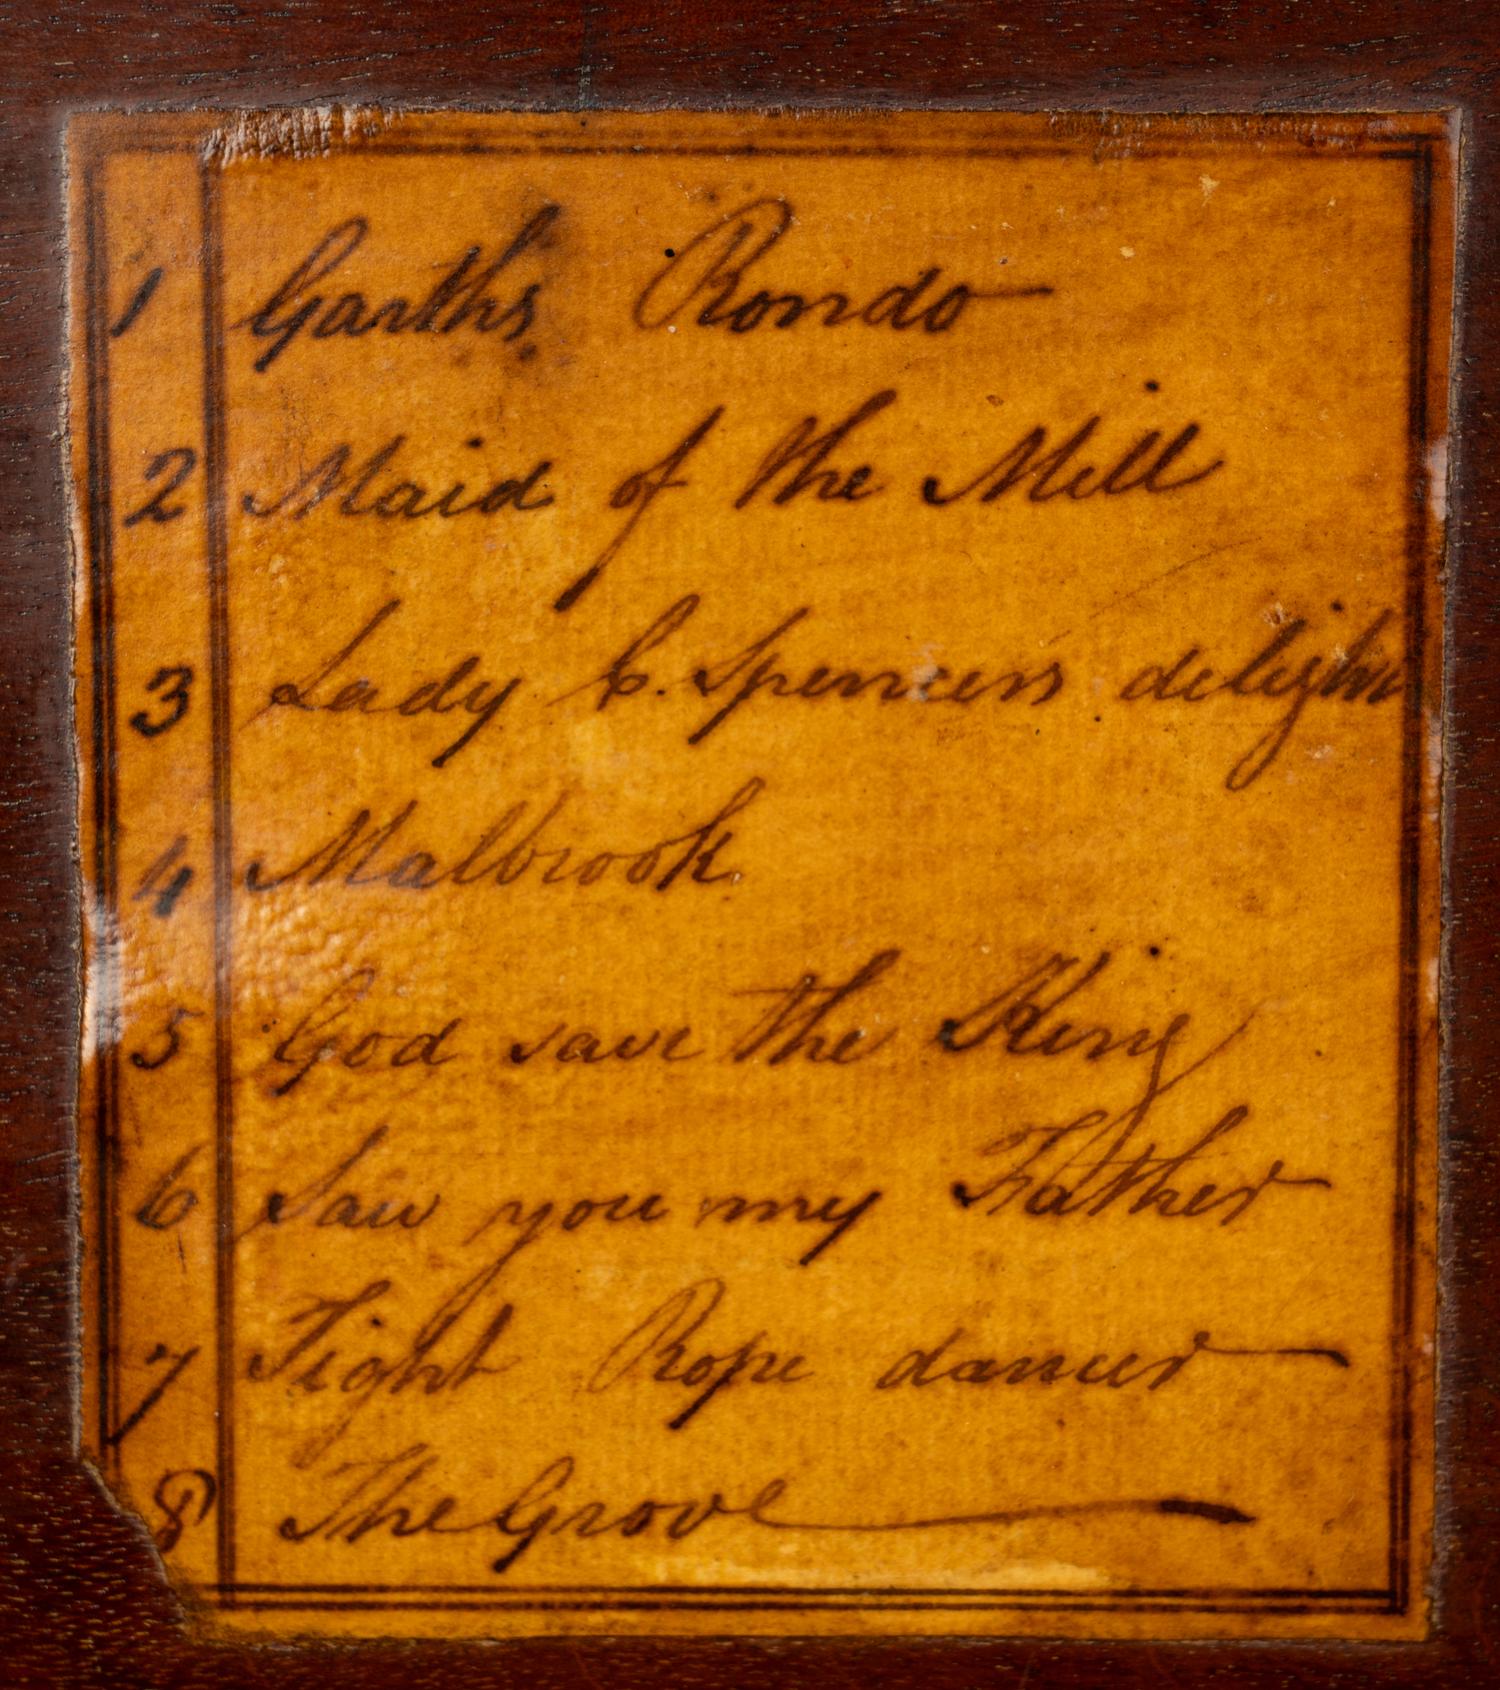 1 Garths Rondo
2 Maid of the Mill
3 Lady C. Spencers delight
4 Malbrook
5 God save the King
6 Saw you my Father
7 Tight Rope dancer
8 The Grove